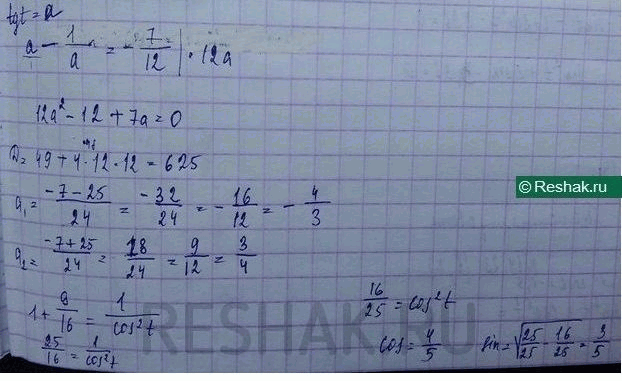 tgt = a
a/1 - 1/a = - 7/12 | · 12a
12a² - 12 + 7a = 0
D = 49 + 4 · 12 · 12 = 625
a₁ = (-7-25)/24 = -32/24 = - 16/12 = - 4/3
a₂ = (-7+25)/24 = 18/24 = 9/12 = 3/4
1 + 9/16 = 1/cos²t
25/16 = 1/cos²t
16/25 = cos²t
cos = 4/5
sin = √(25/25 - 16/25) = 3/5
© Reshak.ru
RESHAK.RU